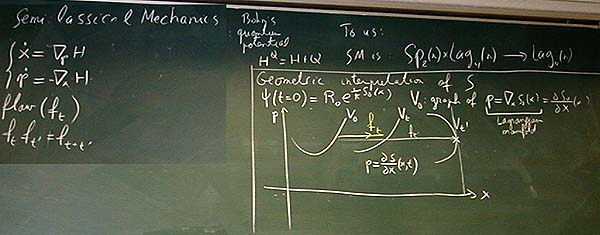 Semi Classical Mechanics
ẋ = ∇ₚ H
ṗ = -∇ₓ H
flow (f_t)
f_t f_t' = f_t+t'
Bohm's
quantum
potential
H^Q = H+Q
To us:
SM is:
Geometric interpretation of S
Ψ(t=0) = R₀ e^{i/ħ S₀(x)}
V₀: graph of p = ∇ₓ S₀(x) = ∂S₀/∂x (x)
Lagrangian
manifold
p
V₀
f_t
V_t
f_t'
V_t'
p = ∂S/∂x (x,t)
x